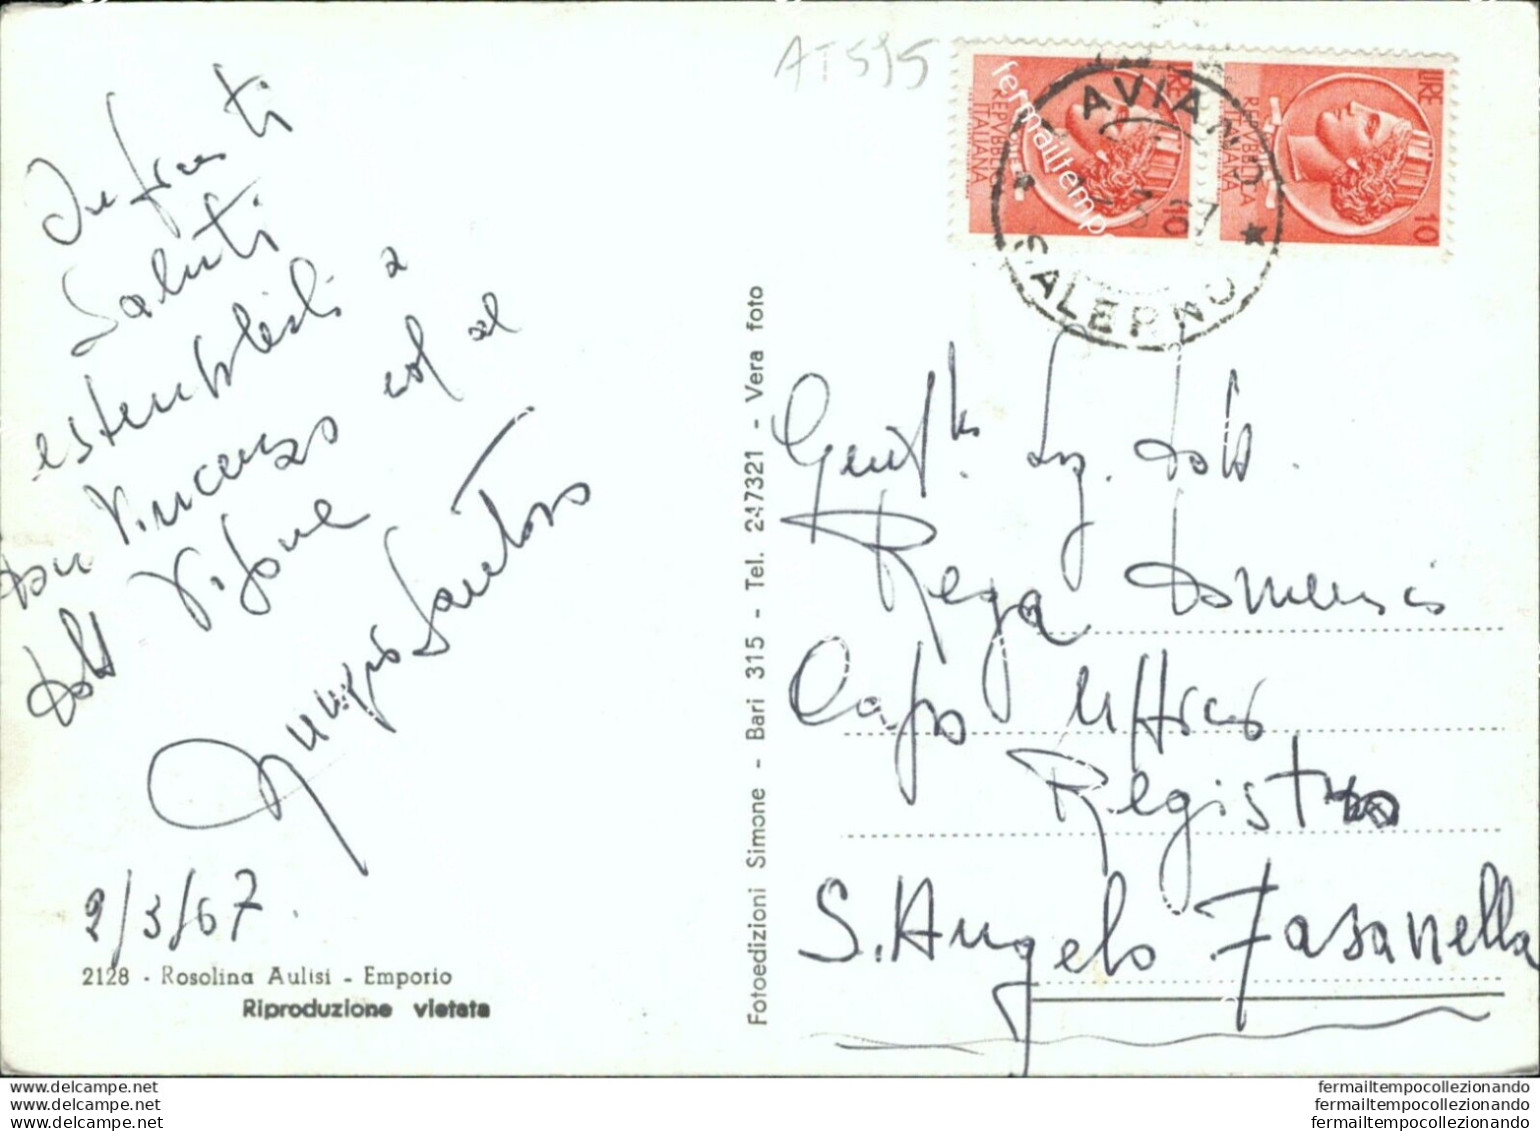 AT515
LIRE
REPVBBLICA
ITALIANA
10
LIRE
REPVBBLICA
ITALIANA
10
fermailtempo
LAVIANO
2.3.67
SALERNO
Saluti
estensibili a
don Vincenzo ed al
dott Vifone
Santoro
2/3/67.
2128 - Rosolina Aulisi - Emporio
Riproduzione vietata
Fotoedizioni Simone - Bari 315 - Tel. 247321 - Vera foto
Gent. Sig. dott.
Rega Domenico
Capo Ufficio
Registro
S. Angelo Fasanella
delcampe.net
delcampe.net
delcampe.net
fermailtempocollezionando
fermailtempocollezionando
fermailtempocollezionando